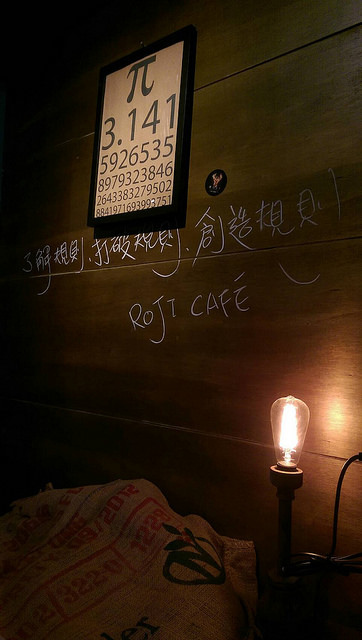 π
3.141
5926535
8979323846
2643383279502
8841971693993751
了解規則、打破規則、創造規則
ROJI CAFÉ
2012
322